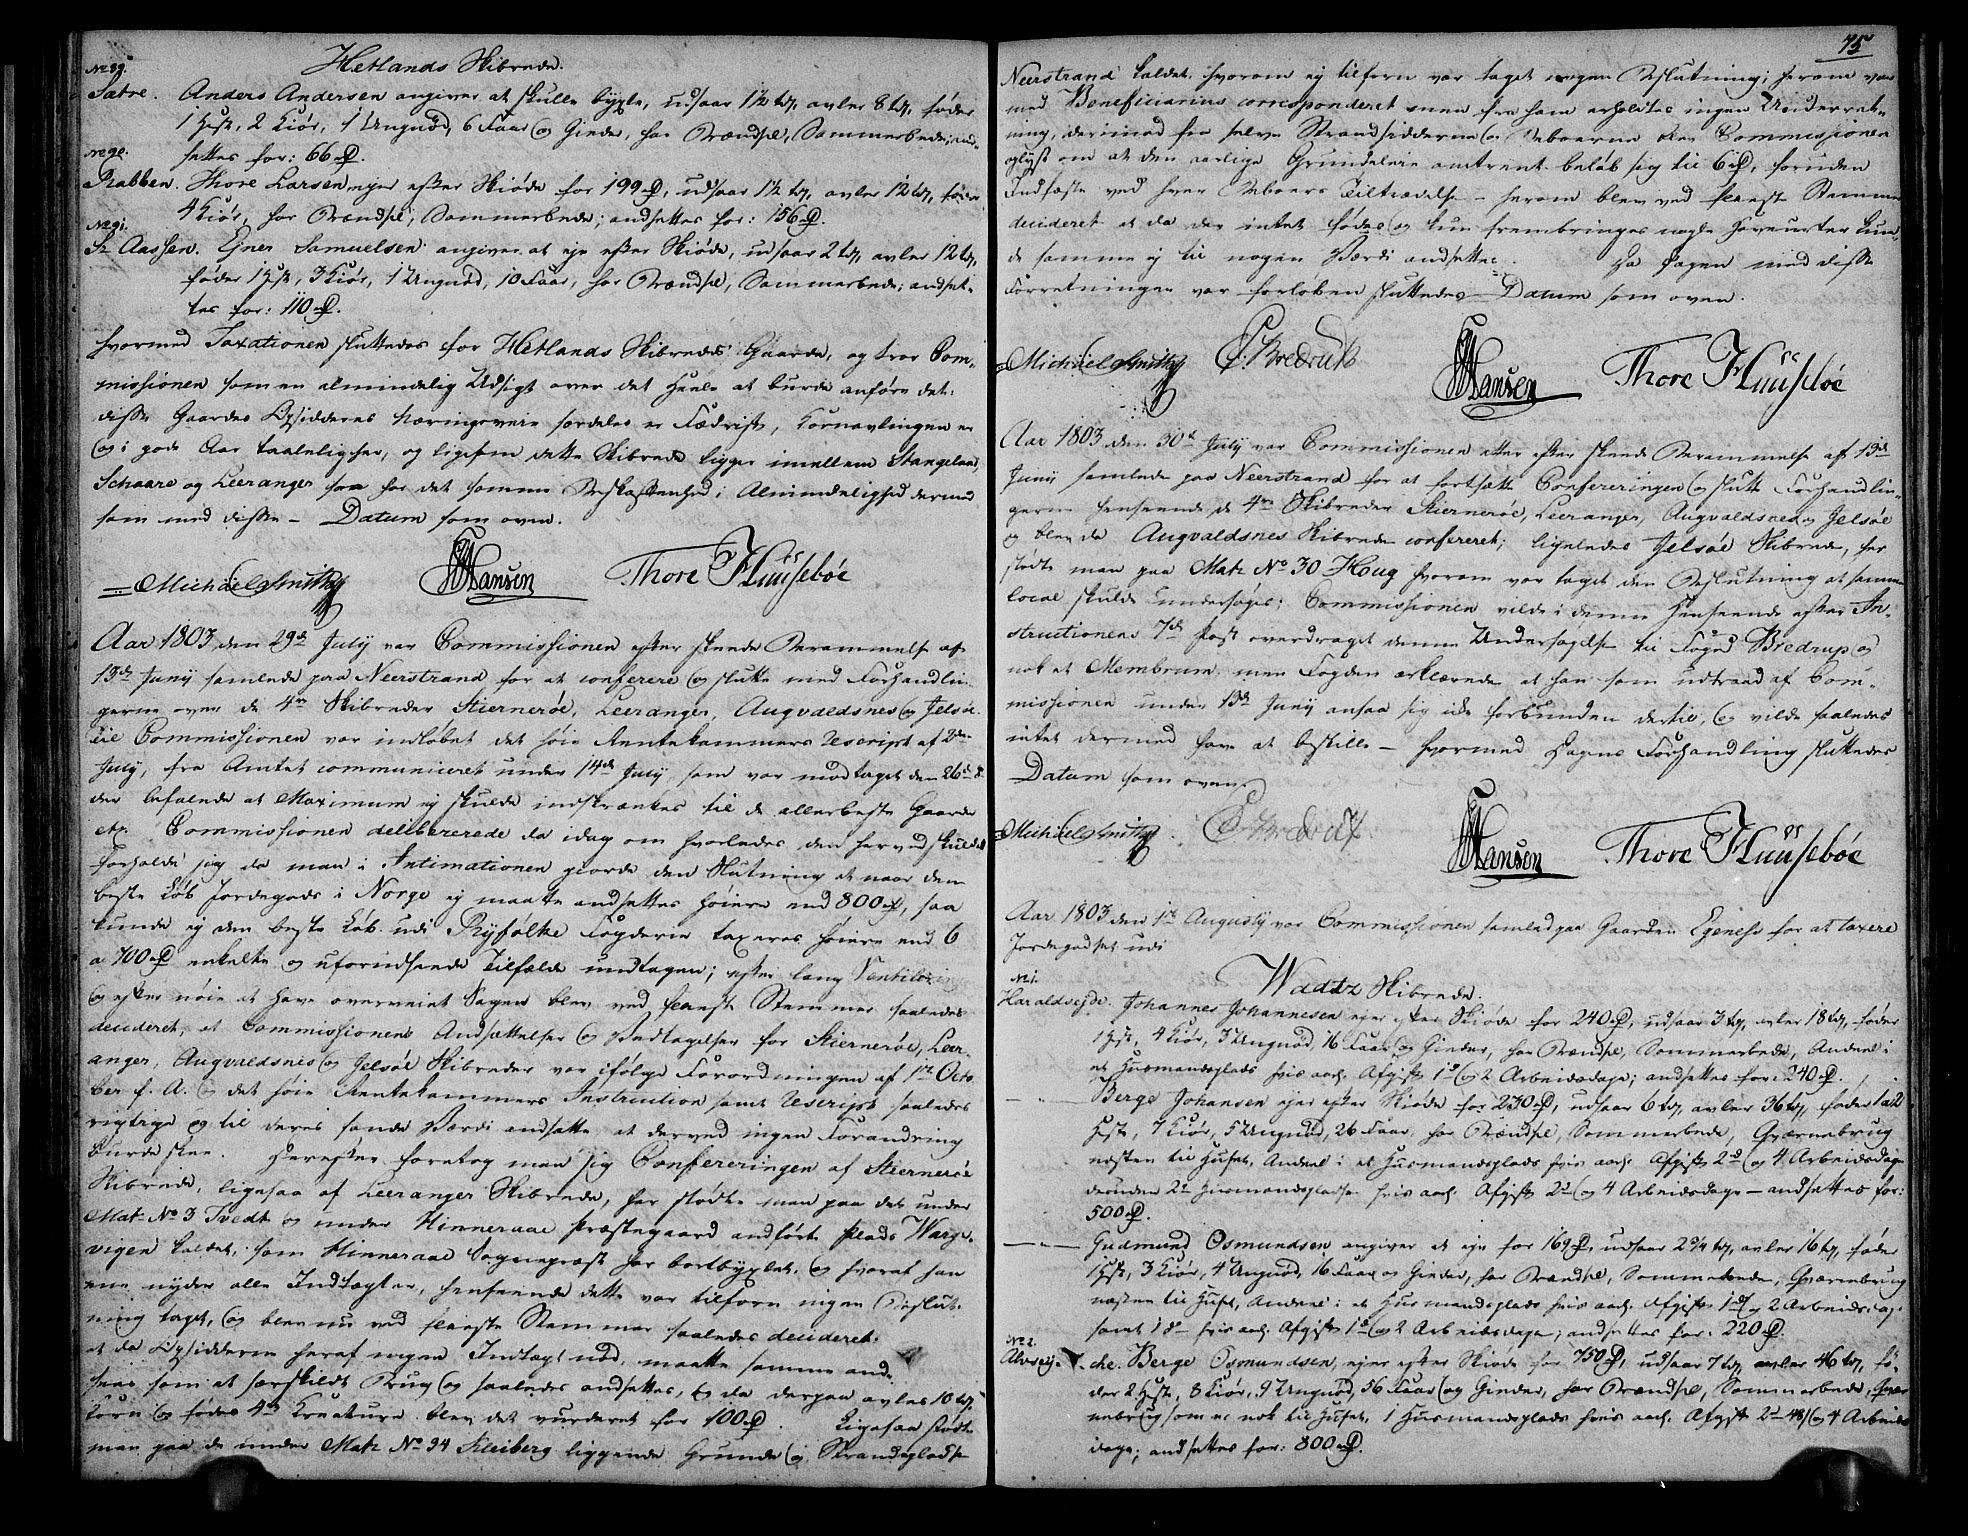 Hetlands Skibrede.
No 89.
Sætre. Anders Andersen angiver at skulle bygle, udsaar 1½ tdr, avler 8 tdr, føder
1 Hest, 2 Kiør, 1 Ungnød, 6 Faar og Gieder, har Brændsel, Sommerbede; and-
sættes for: 66 rd.
No 90.
Rabben. Thore Larsen ejer efter Skiøde for 199 rd, udsaar 1½ tdr, avler 12 tdr, føder
4 Kiør, har Brændsel, Sommerbede; andsættes for: 156 rd.
No 91.
Sr Aassen. Ejner Samuelsen angiver at eje efter Skiøde, udsaar 2 tdr, avler 12 tdr,
føder 1 Hest, 3 Kiør, 1 Ungnød, 10 Faar, har Brændsel, Sommerbede; andsæt-
tes for: 110 rd.
hvormed Taxationen sluttedes for Hetlands Skibredes Gaarde, og troe Com-
missionen som en almindelig Udsigt over det heele at burde anføre det:
disse Gaardes Opsidderes Næringsveie særdeles er Fædrift, Kornavlingen er
og i gode Aar taaleligher, og ligesom dette Skibrede ligger imellem Stangeland,
Schaare og Leeranger saa har det samme Beskaffenhed i Almindelighed dermed
som med disse – Datum som oven.
Michael Smith HHansen Thore Huusebøe
Aar 1803 den 29de July var Commissionen efter skeede Berammelse af
13de Juny samlede paa Neerstrand for at conferere og slutte med Forhandlin-
gerne over de 4re Skibreder Stiernerøe, Leeranger, Augvaldsnes og Jelsøe.
Til Commissionen var indløbet det høie Rentekammers Rescript af 2den
July, fra Amtet communiceret under 14de July, som var modtaget den 26de ds
der befalende at Maximum ej skulde indskrænkes til de allerbeste Gaarde
etc. Commissionen delibererede da idag om hvorledes den herved skulde
forholde sig da man i Intimationen giorde den Slutning at naar den
beste Løb Jordegods i Norge ej maatte andsættes høiere end 800 rd, saa
kunde ej den beste Løb udi Ryfølke Fogderie taxeres høiere end 6
a 700 rd enkelte og uforudseende Tilfælde undtagen; efter lang Ventilering
og efter nøie at have overveiet Sagen blev ved fleeste Stemmer saaledes
decideret, at Commissionens Andsættelser og Vedtagelser for Stiernerøe, Leer-
anger, Augvaldsnes og Jelsøe Skibreder var ifølge Forordningen af 1ste Octo-
ber f. A. og det høie Rentekammers Instruction samt Rescript saaledes
rigtige og til deres sande Værdi andsatte at derved ingen Forandring
burde skee. Herefter foretog man sig Confereringen af Stiernerøe
Skibrede, ligesaa af Leeranger Skibrede, her stødte man paa det under
Mat. No 3 Tvedt og under Hinneraae Præstegaard andførte Plads Warge-
vigen kaldet, som Hinneraae Sognepræst har bortbyxlet, og hvoraf han
ene nyder alle Indtægter, henseende dette var tilforn ingen Beslut-
ning taget, og blev nu ved fleeste Stemmer saaledes decideret:
at da Opsidderen heraf nogen Indtægt nød, maatte samme and-
sees som et særskildt Brug og saaledes andsættes, og da derpaa avles 10 tdr
Korn og fødes 4re Kreature blev det vurderet for 100 rd. Ligesaa stødte
man paa de under Mat. No 34 Kleiberg liggende Grunde og Strandeplads
75
Neerstrand kaldet hvorom ej tilforn var taget nogen Beslutning; herom var
med Beneficiarius corresponderet men fra ham erholdtes ingen Underret-
ning, derimod fra selve Strandsidderne og Beboerne blev Commissionen
oplyst om at den aarlige Grundeleie omtrent beløb sig til 6 rd, foruden
Indfæste ved hver Beboers Tiltrædelse – herom blev ved fleeste Stemmer
decideret at da der intet fødes og kun frembringes nogle Haveurter kun-
de samme ej til nogen Værdi andsættes. Da Dagen med disse
Forretninger var forløben sluttedes – Datum som oven.
Michael Smith C. Bredrup HHansen Thore Huusebøe
Aar 1803 den 30te July var Commissionen etter efter skeede Berammelse af 13de
Juny samlede paa Neerstrand for at fortsætte Confereringen og slutte Forhandlin-
gerne henseende de 4re Skibreder Stiernerøe, Leeranger, Augvaldsnes og Jelsøe
og blev da Augvaldsnes Skibrede confereret; ligeledes Jelsøe Skibrede, her
stødte man paa Mat. No 30 Houg hvorom var taget den Beslutning at samme
local skulde undersøges; Commissionen vilde i denne Henseende efter In-
structionens 7de Post overdraget denne Undersøgelse til Foged Bredrup og
nok et Membrum, men Fogden erklærede at han som udtraad af Com-
missionen under 13de Juny ansaa sig ikke forbunden dertil, og vilde saaledes
intet dermed have at bestille – hvormed Dagens Forhandling sluttedes
Datum som oven.
Michael Smith C. Bredrup HHansen Thore Huusebøe
Aar 1803 den 1ste Augusty var Commissionen samlet paa Gaarden Egenese for at taxere
Jordegodset udi
Waatz Skibrede.
No 1.
Haraldsejde. Johannes Johannesen ejer efter Skiøde for 240 rd, udsaar 3 tdr, avler 18 tdr, føder
1 Hest, 4 Kiør, 3 Ungnød, 16 Faar og Gieder, har Brændsel, Sommerbede, Andeel i
et Huusmandsplads hvis aarl. Afgift 1 d og 2 Arbeidsdage; andsættes for: 240 rd.
– „ – Berge Johansen ejer efter Skiøde for 230 rd, udsaar 6 tdr, avler 36 tdr, føder 1 a 2
Heste, 7 Kiør, 5 Ungnød, 26 Faar, har Brændsel, Sommerbede, Qværnebrug
næsten til Huset, Andeel i et Huusmandsplads hvis aarl. Afgift 2 d og 4 Arbeidsdage
desuden 2de Huusmandspladse hvis aarl. Afgift 2 d og 4 Arbeidsdage – andsættes for:
500 rd.
– „ – Gudmund Osmundsen angiver at eje for 169 rd, udsaar 2¾ tdr, avler 16 tdr, føder
1 Hest, 3 Kiør, 4 Ungnød, 16 Faar og Gieder, har Brændsel, Sommerbede, Qværnebrug
næsten til Huset, Andeel i et Huusmandsplads hvis aarl. Afgift 1 d og 2 Arbeidsdage
samt 1 d – hvis aarl. Afgift 1 d og 2 Arbeidsdage; andsættes for: 220 rd.
No 2.
Alvseje-
de. Berge Osmundsen, ejer efter Skiøde for 750 rd, udsaar 7 tdr, avler 46 tdr, fø-
der 2 Heste, 8 Kiør, 9 Ungnød, 56 Faar og Gieder, har Brændsel, Sommerbede, Qvær-
nebrug som er nok til Huset, 1 Huusmandsplads hvis aarl. Afgift 2 d 48 s og 4 Arbeids-
dage; andsættes for: 800 rd.